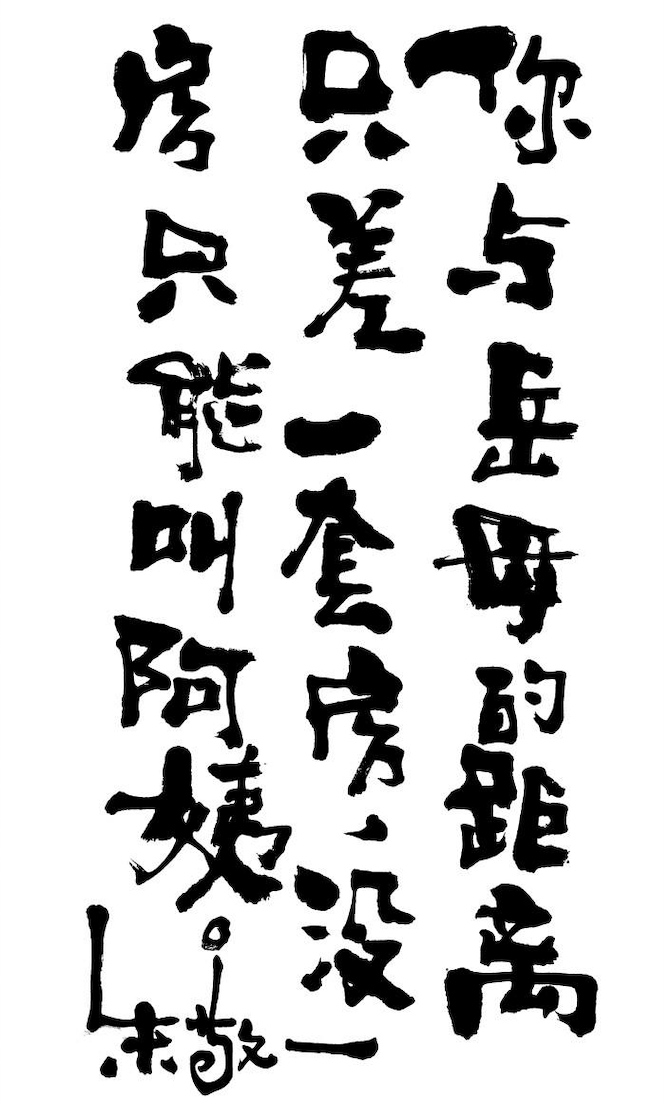 你与岳母的距离
只差一套房，没
房只能叫阿姨
朱敬一